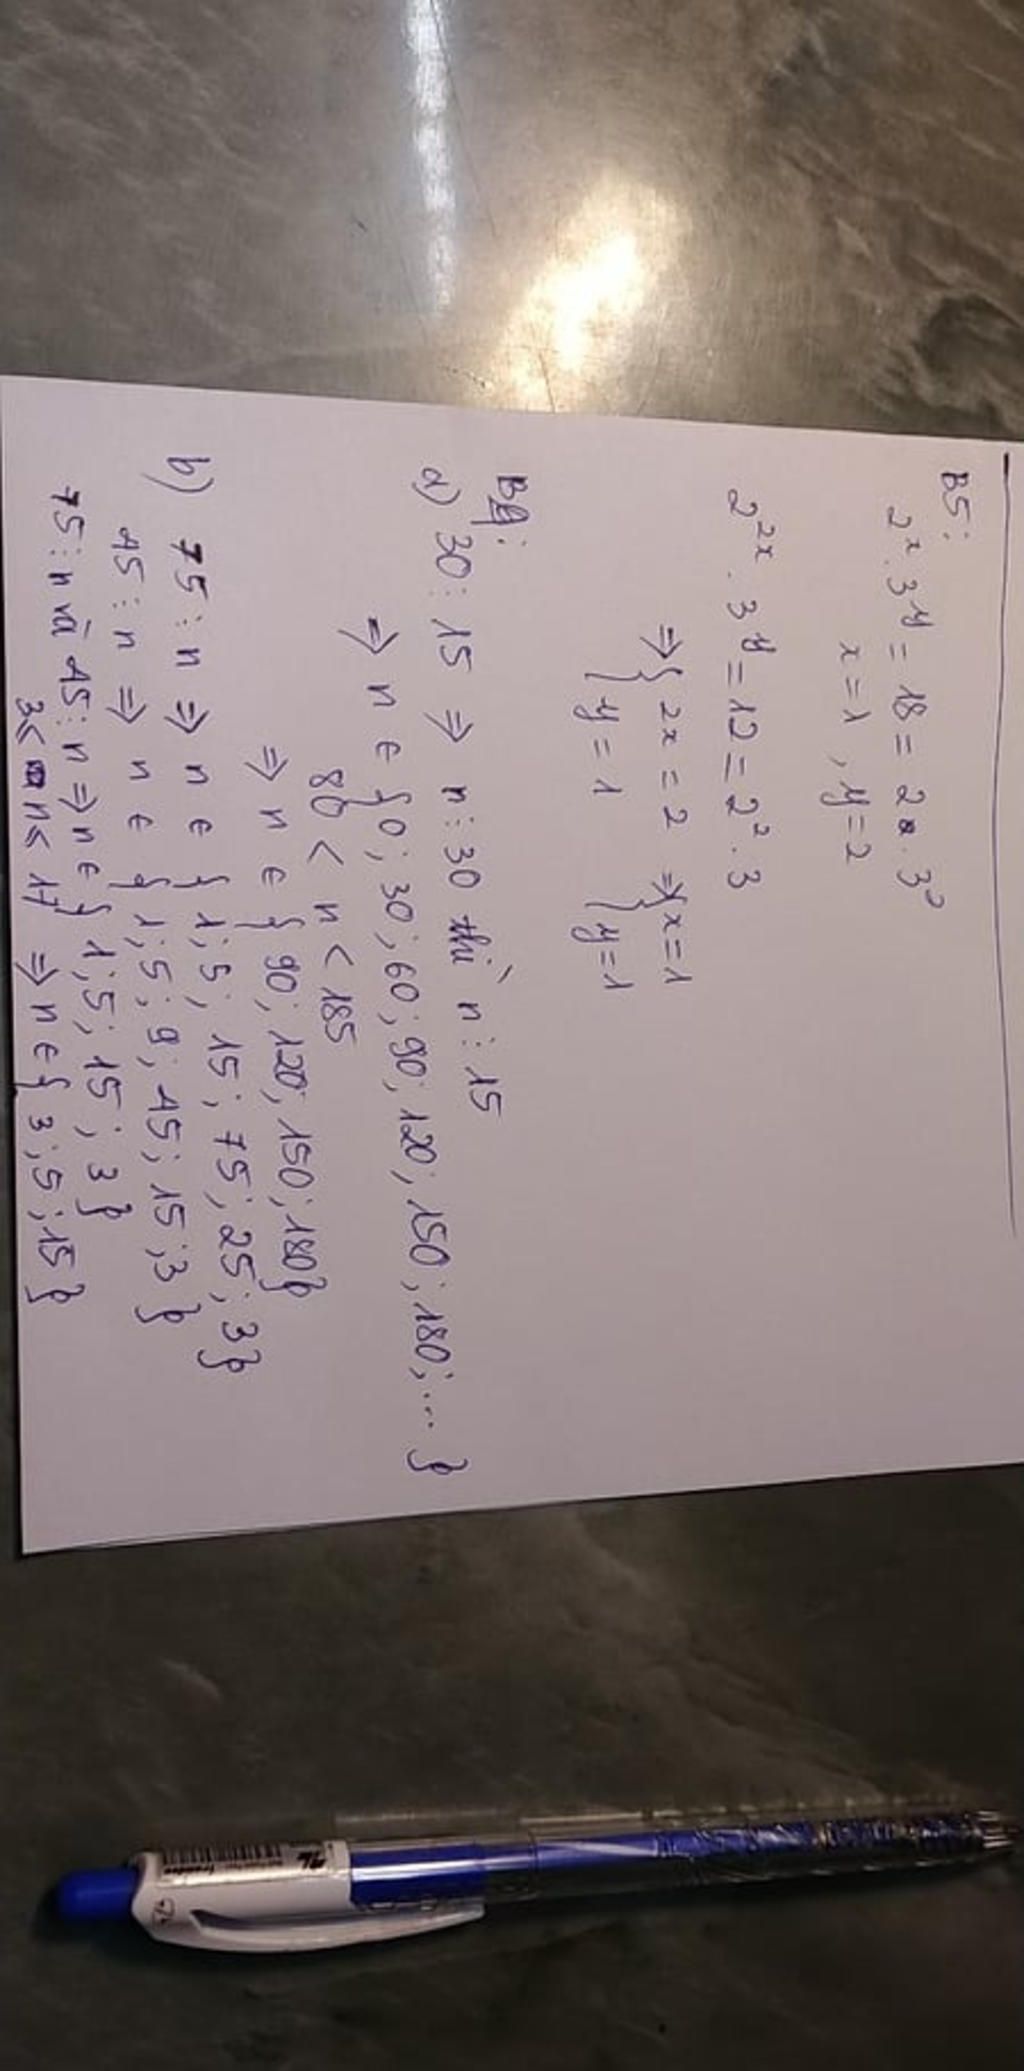 B5:
2^x . 3^y = 18 = 2 . 3²
x = 1 , y = 2
2^2x . 3^y = 12 = 2² . 3
⇒ { 2x = 2 ⇒ { x = 1
{ y = 1 { y = 1
a) 30 ⋮ 15 ⇒ n ⋮ 30 thì n ⋮ 15
⇒ n ∈ { 0 ; 30 ; 60 ; 90 ; 120 ; 150 ; 180 ; ... }
80 < n < 185
⇒ n ∈ { 90 ; 120 ; 150 ; 180 }
b) 75 ⋮ n ⇒ n ∈ { 1 ; 5 ; 15 ; 75 ; 25 ; 3 }
45 ⋮ n ⇒ n ∈ { 1 ; 5 ; 9 ; 45 ; 15 ; 3 }
75 ⋮ n và 45 ⋮ n ⇒ n ∈ { 1 ; 5 ; 15 ; 3 }
3 ≤ n ≤ 17 ⇒ n ∈ { 3 ; 5 ; 15 }